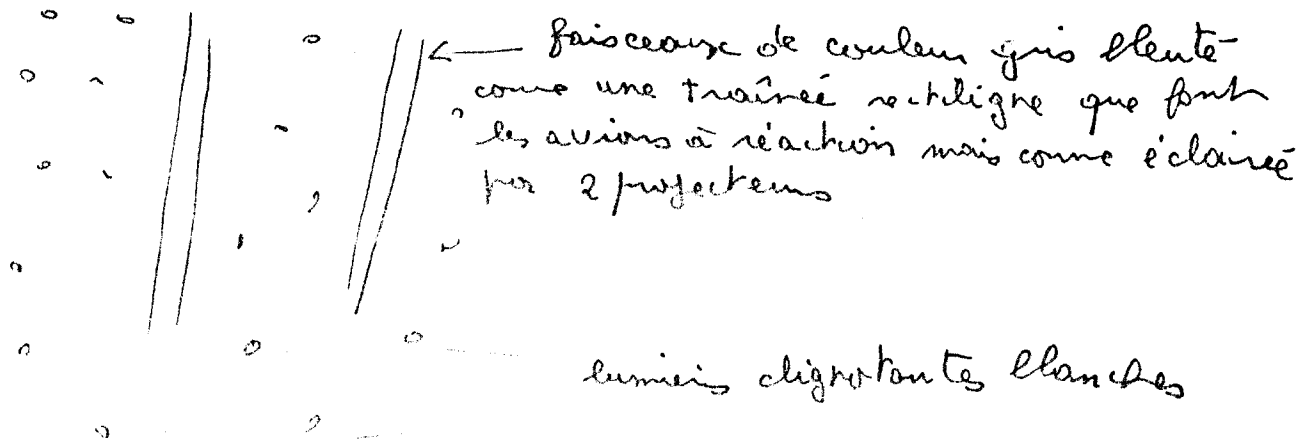 faisceaux de couleur gris bleuté
comme une traînée rectiligne que font
les avions à réaction mais comme éclairée
par 2 projecteurs
lumières clignotantes blanches